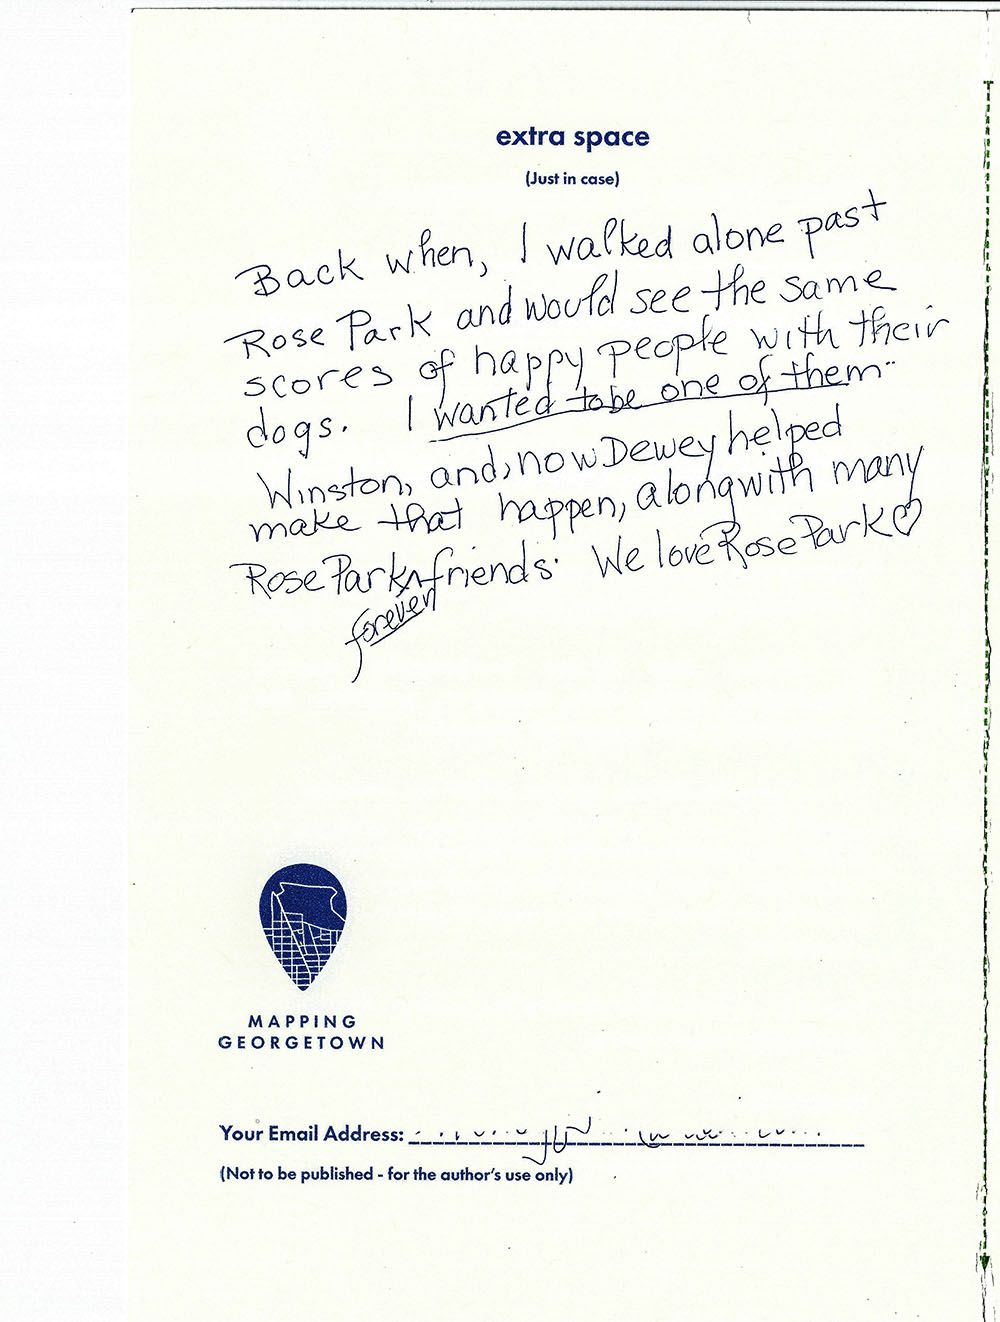 extra space
(Just in case)
Back when, I walked alone past
Rose Park and would see the same
scores of happy people with their
dogs. I wanted to be one of them..
Winston, and, now Dewey helped
make that happen, along with many
Rose Park ^ friends. We love Rose Park ♡
forever
MAPPING
GEORGETOWN
Your Email Address:
(Not to be published - for the author's use only)